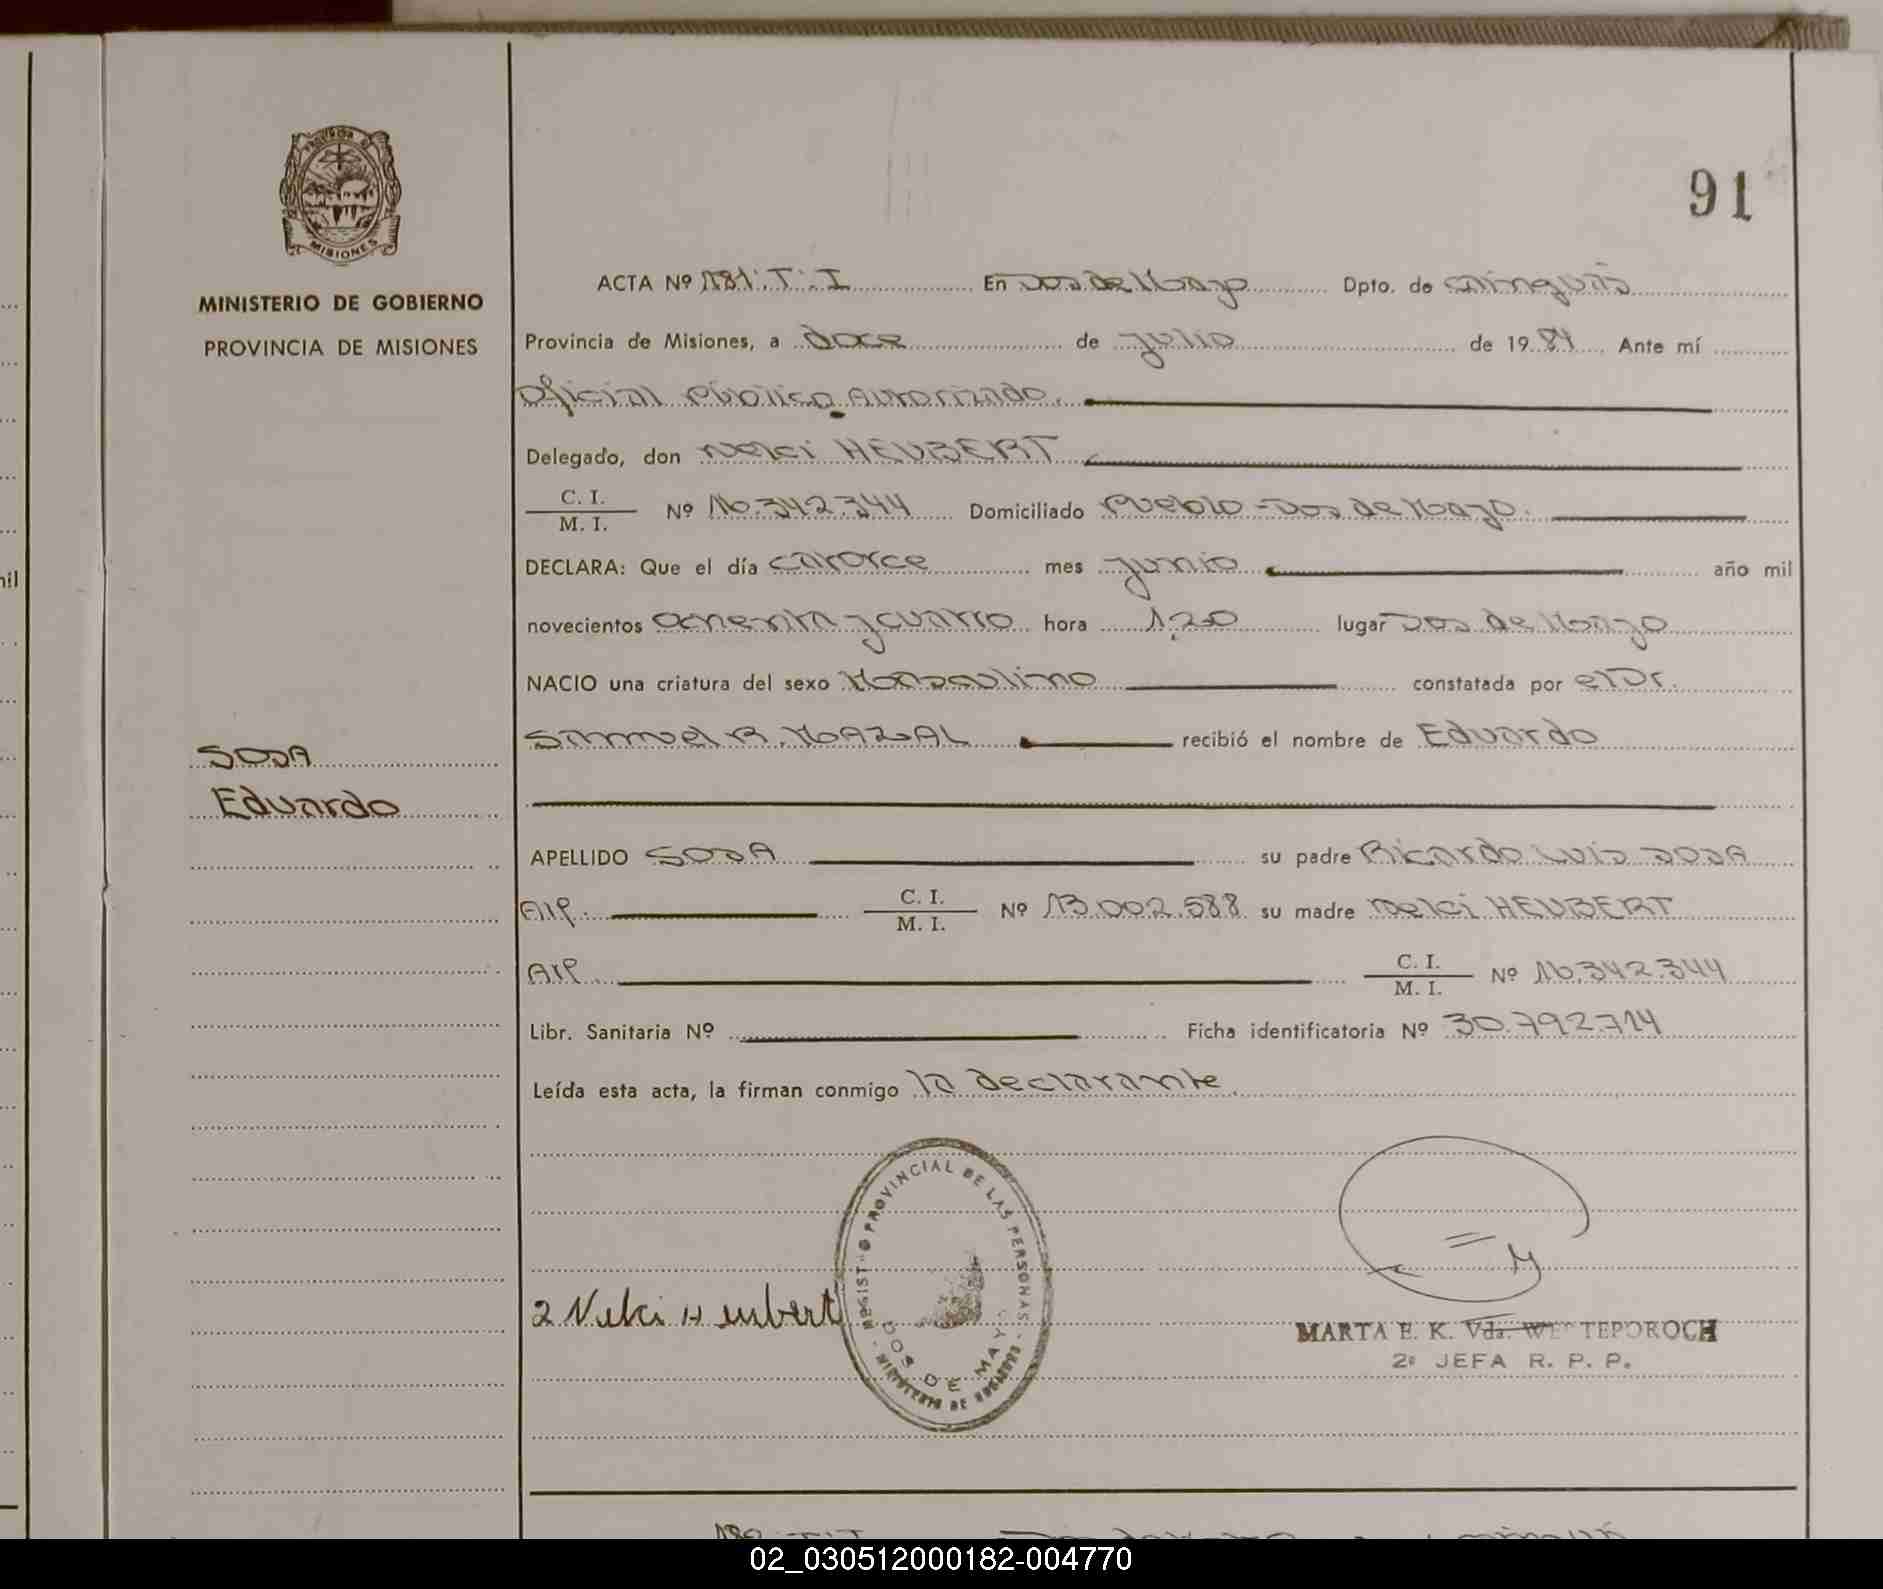 91
MINISTERIO DE GOBIERNO
PROVINCIA DE MISIONES
ACTA Nº 181.T:I En Dos de Mayo Dpto. de Cainguás
Provincia de Misiones, a doce de julio de 1984 Ante mí
Oficial Público Autorizado.
Delegado, don Nelci HEUBERT
C. I.
M. I. Nº 16.342.344 Domiciliado Pueblo - Dos de Mayo.
DECLARA: Que el día catorce mes junio año mil
novecientos ochenta y cuatro hora 1,20 lugar Dos de Mayo
NACIO una criatura del sexo Masculino constatada por el Dr.
Samuel R. MAZAL recibió el nombre de Eduardo
SOSA
Eduardo
APELLIDO SOSA su padre Ricardo Luis SOSA
Arg. C. I.
M. I. Nº 13.002.588 su madre Nelci HEUBERT
Arg. C. I.
M. I. Nº 16.342.344
Libr. Sanitaria Nº Ficha identificatoria Nº 30.792.714
Leída esta acta, la firman conmigo la declarante.
Nelci Heubert
PROVINCIAL DE LAS PERSONAS
DOS DE MAYO
MARTA E. K. Vda. TEPOROCH
2º JEFA R. P. P.
MISIONES
02_030512000182-004770